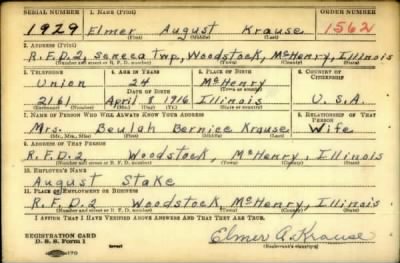 SERIAL NUMBER 1. NAME (Print) ORDER NUMBER
1929 Elmer August Krause 1562
(First) (Middle) (Last)
2. ADDRESS (Print)
R.F.D.2, Seneca Twp, Woodstock, McHenry, Illinois
(Number and street or R. F. D. number) (Town) (County) (State)
3. TELEPHONE 4. AGE IN YEARS 5. PLACE OF BIRTH 6. COUNTRY OF CITIZENSHIP
Union 24 McHenry
DATE OF BIRTH (Town or county)
2161 April 1916 Illinois U.S.A.
7. NAME OF PERSON WHO WILL ALWAYS KNOW YOUR ADDRESS 8. RELATIONSHIP OF THAT PERSON
Mrs. Beulah Bernice Krause Wife
(Mr., Mrs., Miss) (First) (Middle) (Last)
9. ADDRESS OF THAT PERSON
R.F.D.2 Woodstock, McHenry, Illinois
(Number and street or R. F. D. number) (Town) (County) (State)
10. EMPLOYER'S NAME
August Stake
11. PLACE OF EMPLOYMENT OR BUSINESS
R.F.D.2 Woodstock, McHenry, Illinois
(Number and street or R. F. D. number) (Town) (County) (State)
I AFFIRM THAT I HAVE VERIFIED ABOVE ANSWERS AND THAT THEY ARE TRUE.
REGISTRATION CARD
D. S. S. Form 1 Elmer A. Krause
(Registrant's signature)